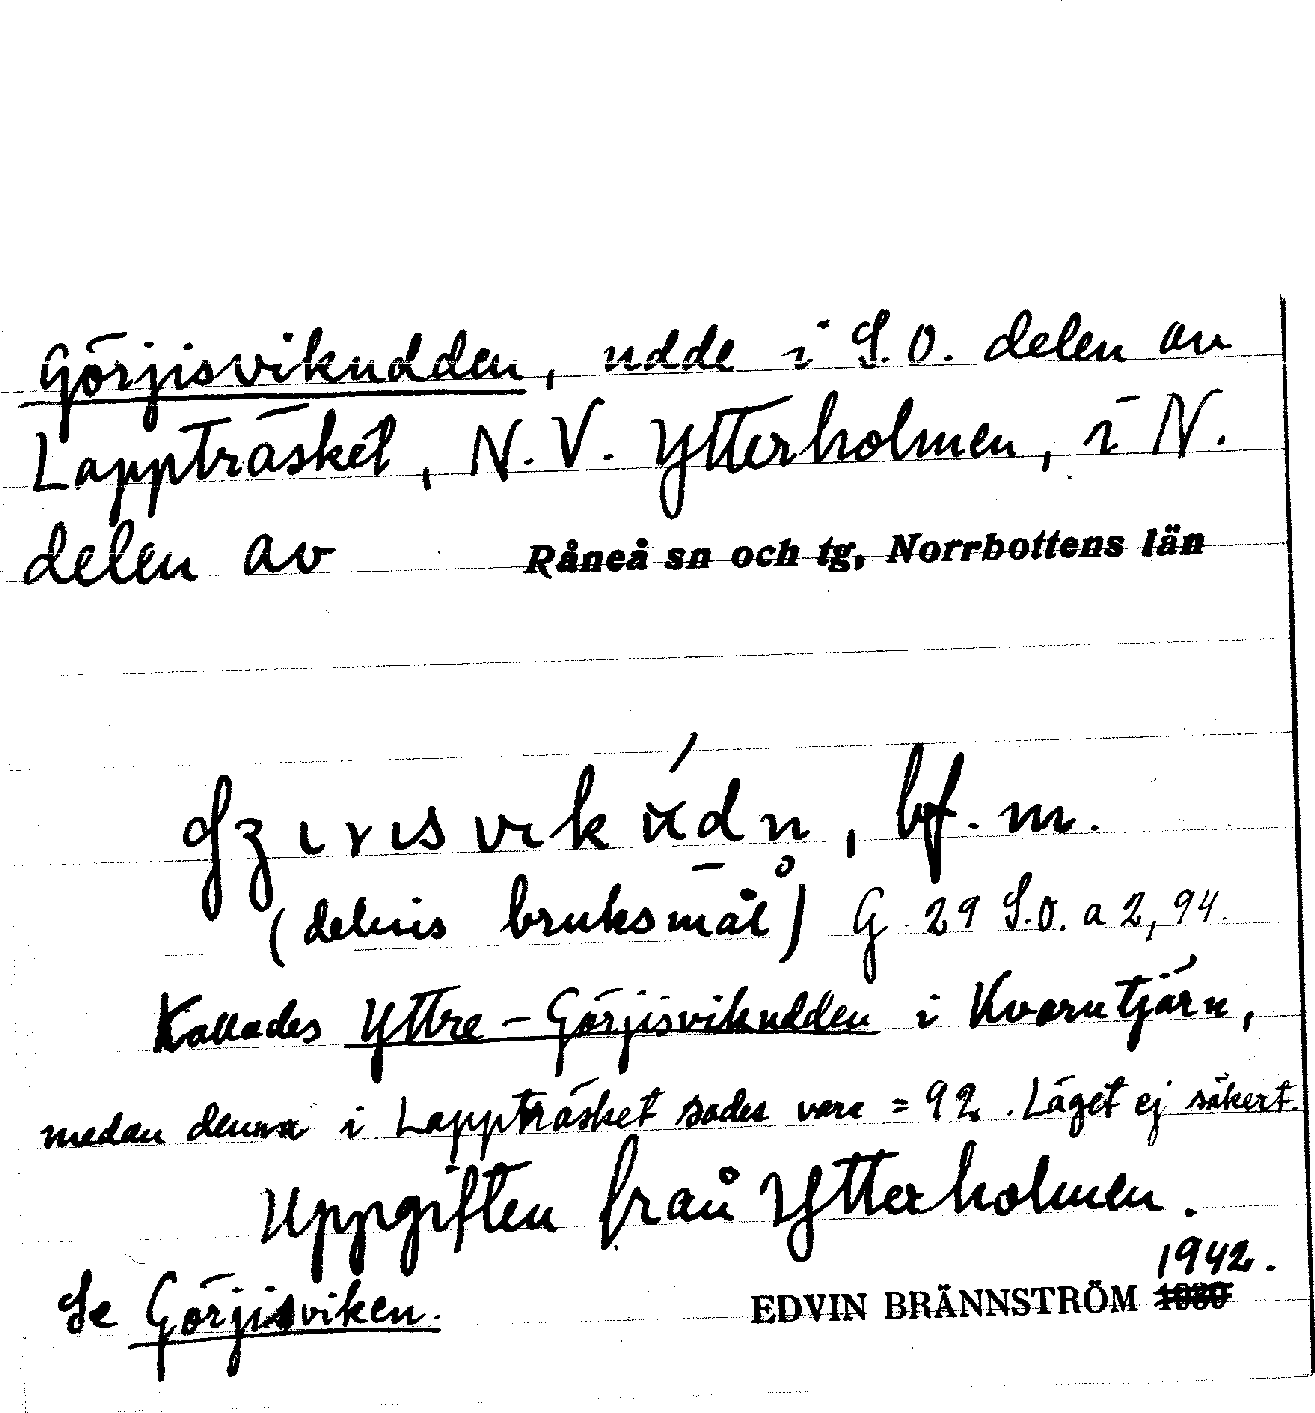 Görjisvikudden, udde i S.O. delen av
Lappträsket, N.V. Ytterholmen, i N.
delen av Råneå sn och tg, Norrbottens län
bf. m.
(delvis bruksmål) G 29 S.O. a 2, 94.
Kallades Yttre-Görjisvikudden i Kvarntjärn,
medan denna i Lappträsket sades vara = 92. Läget ej säkert.
Uppgiften från Ytterholmen.
1942.
Se Görjisviken. EDVIN BRÄNNSTRÖM 1930